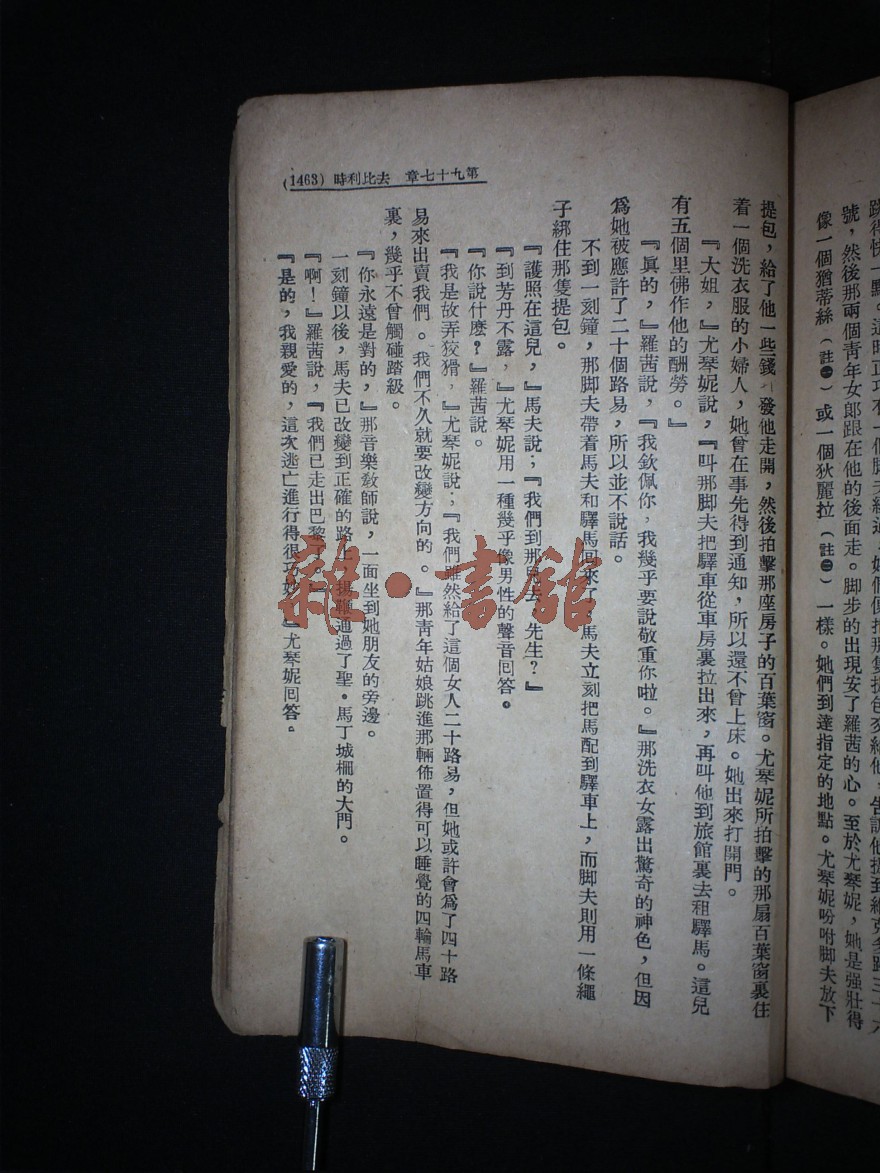 跳得快一點。這時正巧有一個脚夫經過，她們便把那隻提包交給他，告訴他提到維克多路三十六
號，然後那兩個靑年女郎跟在他的後面走。脚步的出現安了羅茜的心。至於尤琴妮，她是强壯得
像一個猶蒂絲（註㊀）或一個狄麗拉（註㊁）一樣。她們到達指定的地點。尤琴妮吩咐脚夫放下
第九十七章 去比利時 (1463)
提包，給了他一些錢 發他走開，然後拍擊那座房子的百葉窗。尤琴妮所拍擊的那扇百葉窗裏住
着一個洗衣服的小婦人，她曾在事先得到通知，所以還不曾上床。她出來打開門。
『大姐，』尤琴妮說，『叫那脚夫把驛車從車房裏拉出來，再叫他到旅館裏去租驛馬。這兒
有五個里佛作他的酬勞。』
『眞的，』羅茜說，『我欽佩你，我幾乎要說敬重你啦。』那洗衣女露出驚奇的神色，但因
爲她被應許了二十個路易，所以並不說話。
不到一刻鐘，那脚夫帶着馬夫和驛馬回來了，馬夫立刻把馬配到驛車上，而脚夫則用一條繩
子綁住那隻提包。
『護照在這兒，』馬夫說；『我們到那兒去，先生？』
『到芳丹不露，』尤琴妮用一種幾乎像男性的聲音回答。
『你說什麼？』羅茜說。
『我是故弄狡猾，』尤琴妮說；『我們雖然給了這個女人二十路易，但她或許會爲了四十路
易來出賣我們。我們不久就要改變方向的。』那靑年姑娘跳進那輛佈置得可以睡覺的四輪馬車
裏，幾乎不曾觸碰踏級。
『你永遠是對的，』那音樂敎師說，一面坐到她朋友的旁邊。
一刻鐘以後，馬夫已改變到正確的路上，揚鞭通過了聖•馬丁城栅的大門。
『啊！』羅茜說，『我們已走出巴黎了。』
『是的，我親愛的，這次逃亡進行得很巧妙，』尤琴妮回答。
雜•書舘